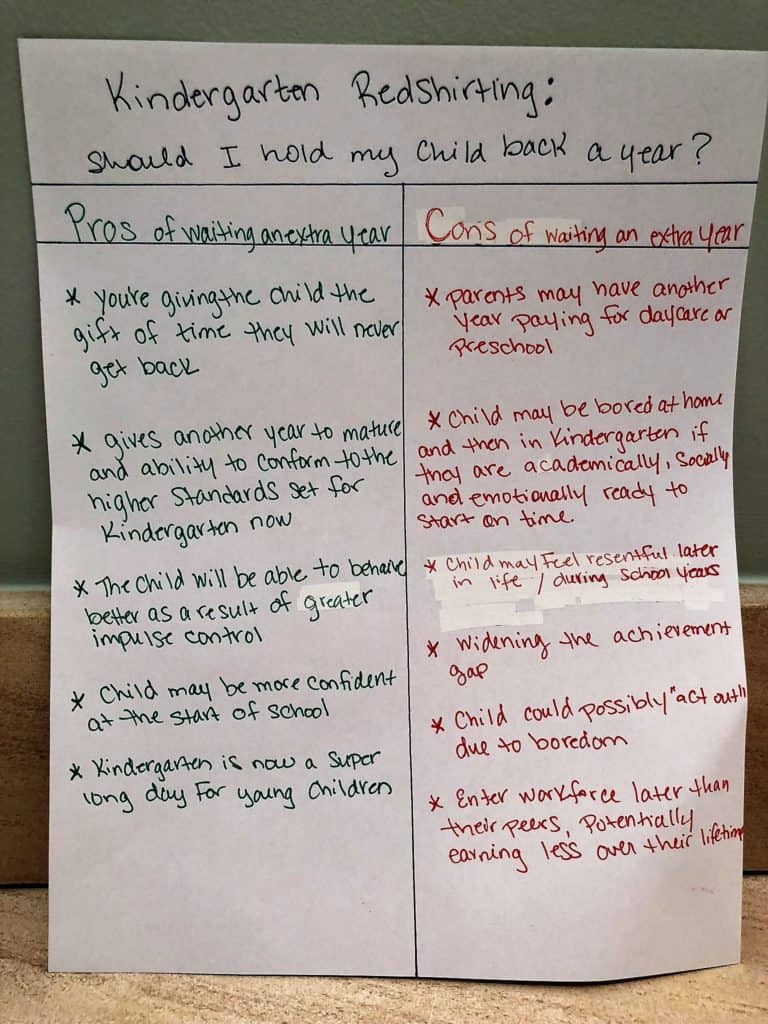 Kindergarten Redshirting:
should I hold my child back a year?
Pros of waiting an extra year
* you're giving the child the
gift of time they will never
get back
* gives another year to mature
and ability to conform to the
higher standards set for
Kindergarten now
* The child will be able to behave
better as a result of greater
impulse control
* Child may be more confident
at the start of school
* Kindergarten is now a super
long day for young children
Cons of waiting an extra year
* parents may have another
year paying for daycare or
preschool
* Child may be bored at home
and then in Kindergarten if
they are academically, socially
and emotionally ready to
start on time.
* Child may feel resentful later
in life / during school years
* widening the achievement
gap
* Child could possibly "act out"
due to boredom
* Enter workforce later than
their peers, potentially
earning less over their lifetime